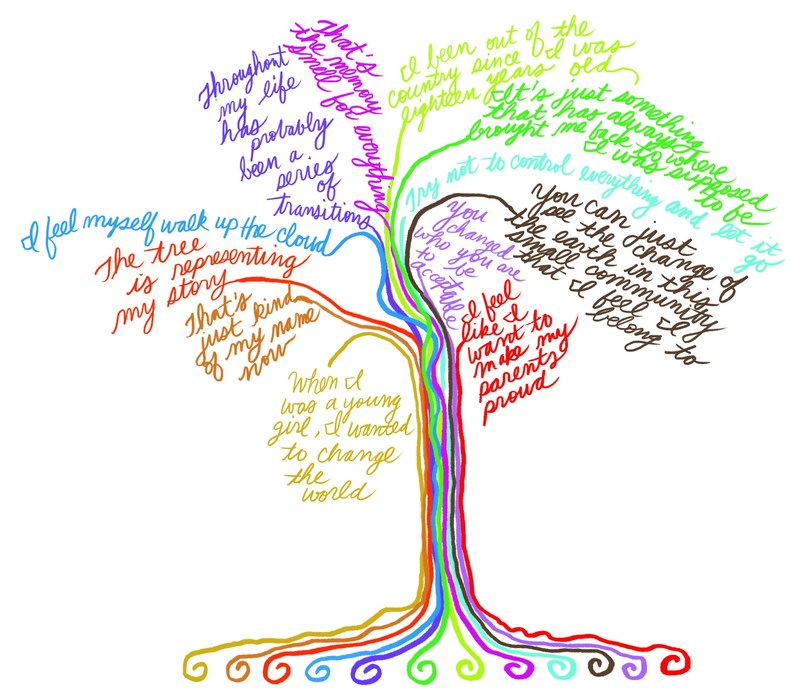 Throughout
my life
has
probably
been a
series
of
transitions
That's
the memory
smell for everything
I been out of the
country since I was
eighteen years old
It's just something
that has always
brought me back to where
I was supposed
to be
Try not to control everything and let it
go
You can just
see the change of
the earth in this
small community
that I feel I
belong to
You
changed
who you are
to be
I feel
like I
want to
make my
parents
proud
I feel myself walk up the cloud
The tree
is representing
my story
That's kind
just
of my name
now
When I
was a young
girl, I wanted
to change
the
world